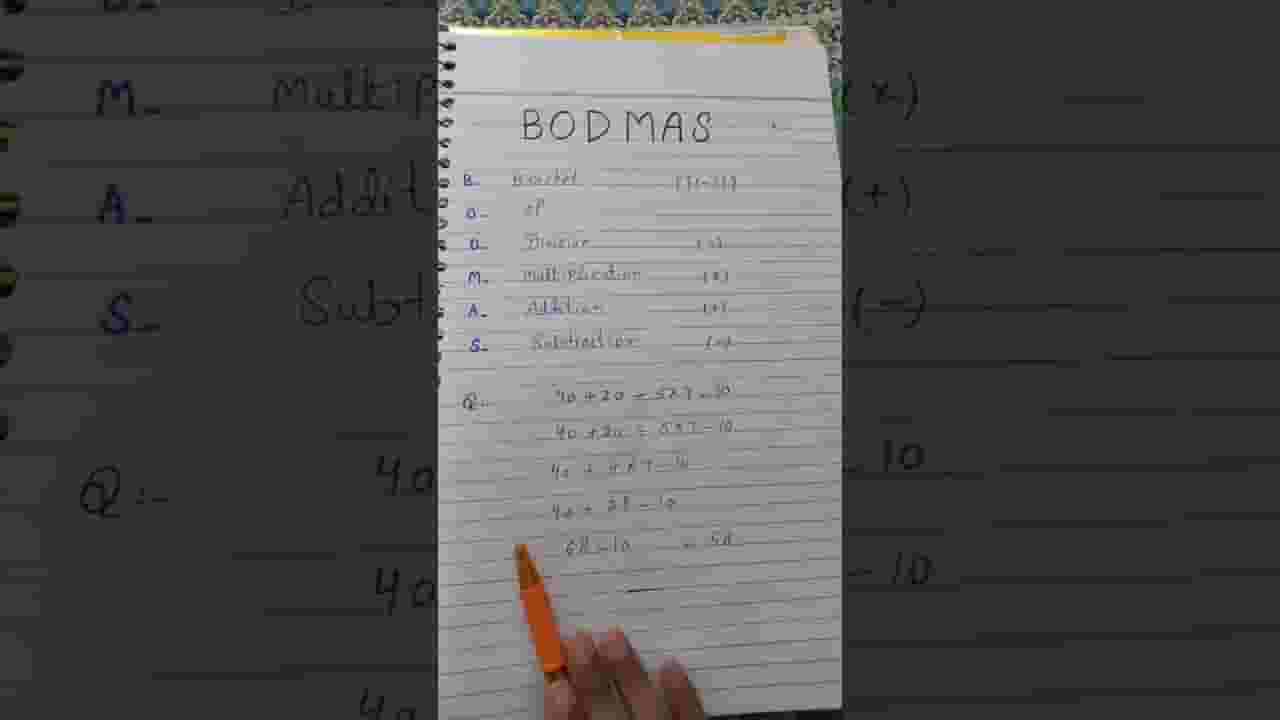 BODMAS
B- Bracket
O- of
D- Division (÷)
M- Multiplication (×)
A- Addition (+)
S- Subtraction (-)
Q:- 40 + 20 ÷ 5 × 7 - 10
40 + 20 ÷ 5 × 7 - 10
40 + 4 × 7 - 10
40 + 28 - 10
68 - 10 = 58
M- Multip (×)
A- Addit (+)
S- Subt (-)
Q:- 40 - 10
40 - 10
40